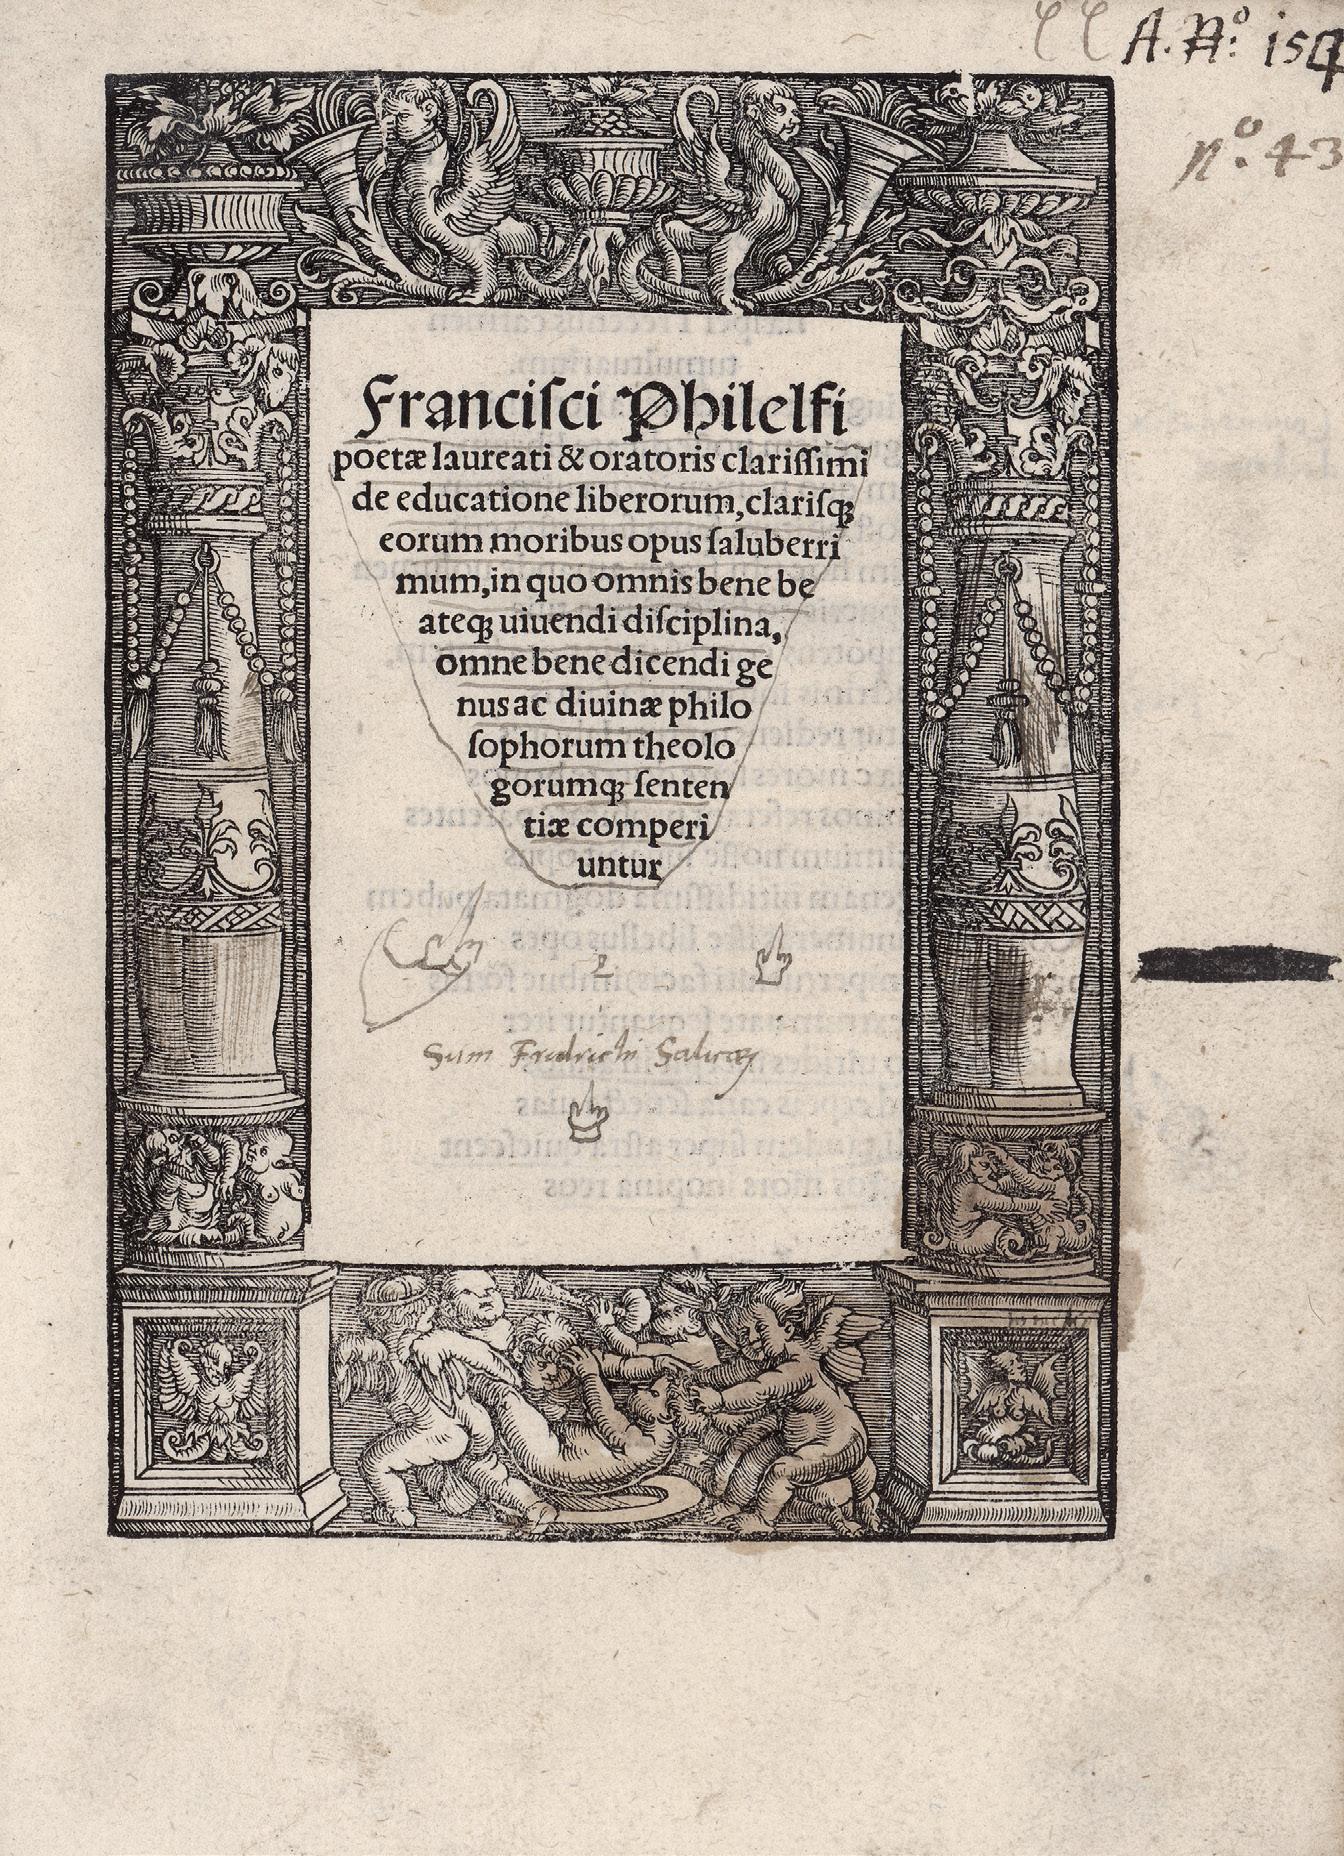 A. N.º 154
n.º 43
Franciſci Philelfi
poetæ laureati & oratoris clariſſimi
de educatione liberorum, clariſqꝫ
eorum moribus opus ſaluberri
mum, in quo omnis bene be
ateqꝫ uiuendi diſciplina,
omne bene dicendi ge
nus ac diuinæ philo
ſophorum theolo
gorumqꝫ ſenten
tiæ comperi
untur
Sum Fridrichi